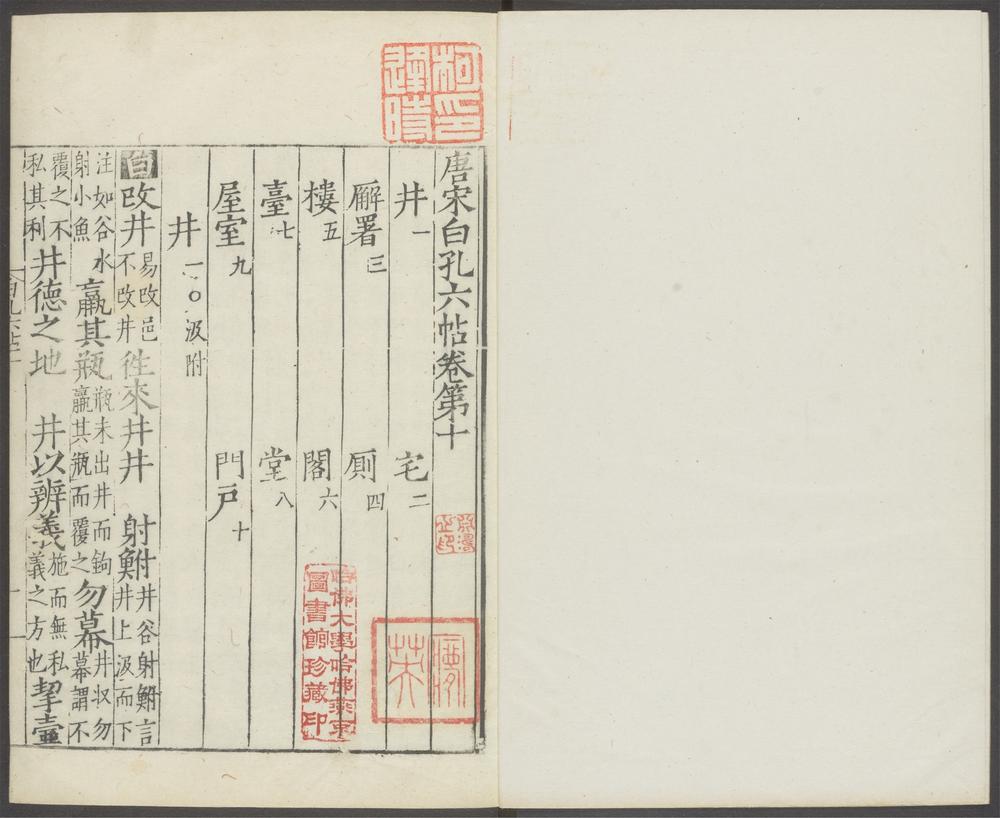 柯逢時印
唐宋白孔六帖卷第十
井一 宅二
廨署三 厠四
樓五 閣六
臺七 堂八
屋室九 門戶十
井一○汲附
白改井易改邑不改井往來井井 射鮒井谷射鮒言井上汲而下
注如谷水射小魚羸其瓶瓶未出井而鉤羸其瓶而覆之勿幕井収勿幕謂不
覆之不私其利井德之地 井以辨義施而無私義之方也挈壺
哈佛大學哈佛燕京
圖書館珍藏印